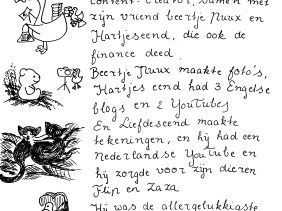 content-creator, samen met
zijn vriend beertje Muux en
Hartjeseend, die ook de
finance deed.
Beertje Muux maakte foto's,
Hartjes eend had 3 Engelse
blogs en 2 YouTubes
En Liefdeseend maakte
tekeningen, en hij had een
Nederlandse YouTube en
hij zorgde voor zijn dieren
Flip en Zaza
Hij was de allergelukkigste